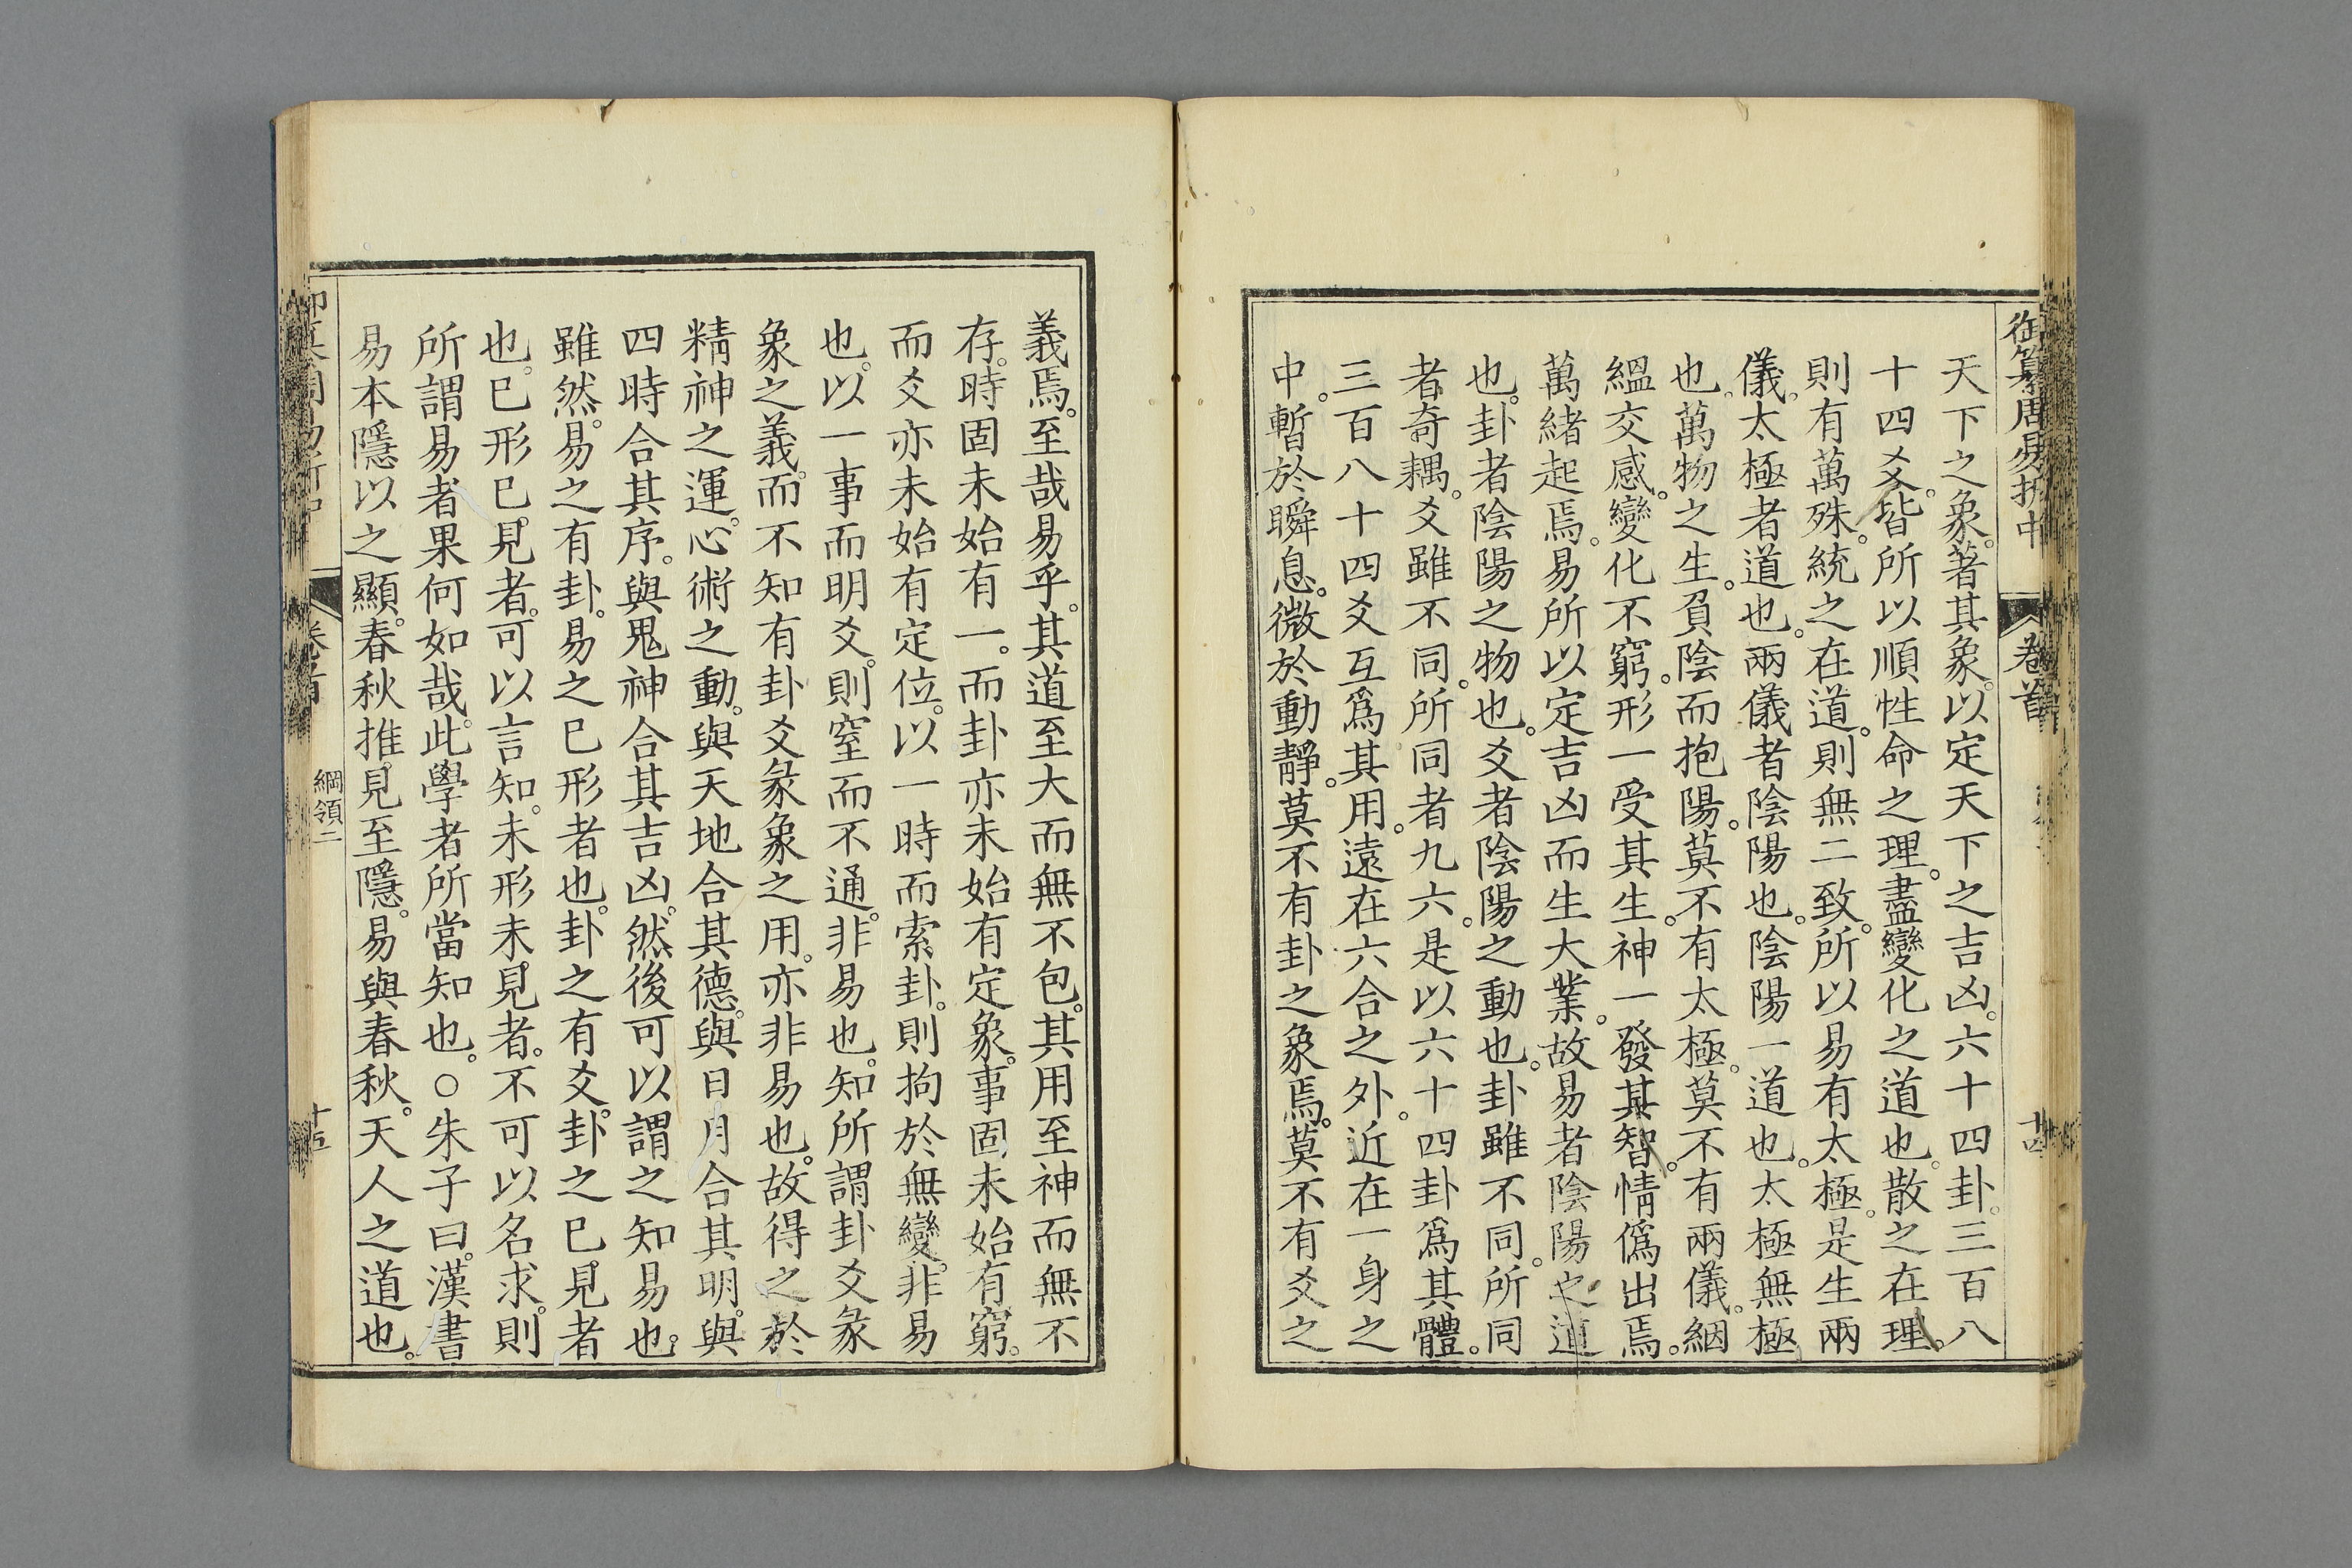 御纂周易折中 卷首 十四
天下之象。著其象。以定天下之吉凶。六十四卦。三百八
十四爻。皆所以順性命之理。盡變化之道也。散之在理。
則有萬殊。統之在道。則無二致。所以易有太極。是生兩
儀。太極者道也。兩儀者陰陽也。陰陽一道也。太極無極
也。萬物之生。負陰而抱陽。莫不有太極。莫不有兩儀。絪
縕交感。變化不窮。形一受其生。神一發其智。情僞出焉。
萬緒起焉。易所以定吉凶而生大業。故易者陰陽之道
也。卦者陰陽之物也。爻者陰陽之動也。卦雖不同。所同
者奇耦。爻雖不同。所同者九六。是以六十四卦爲其體。
三百八十四爻互爲其用。遠在六合之外。近在一身之
中。暫於瞬息。微於動靜。莫不有卦之象焉。莫不有爻之
義焉。至哉易乎。其道至大而無不包。其用至神而無不
存。時固未始有一。而卦亦未始有定象。事固未始有窮。
而爻亦未始有定位。以一時而索卦。則拘於無變。非易
也。以一事而明爻。則窒而不通。非易也。知所謂卦爻彖
象之義。而不知有卦爻彖象之用。亦非易也。故得之於
精神之運。心術之動。與天地合其德。與日月合其明。與
四時合其序。與鬼神合其吉凶。然後可以謂之知易也。
雖然。易之有卦。易之已形者也。卦之有爻。卦之已見者
也。已形已見者。可以言知。未形未見者。不可以名求。則
所謂易者果何如哉。此學者所當知也。○朱子曰。漢書
易本隱以之顯。春秋推見至隱。易與春秋。天人之道也。
卷首 綱領二 十五